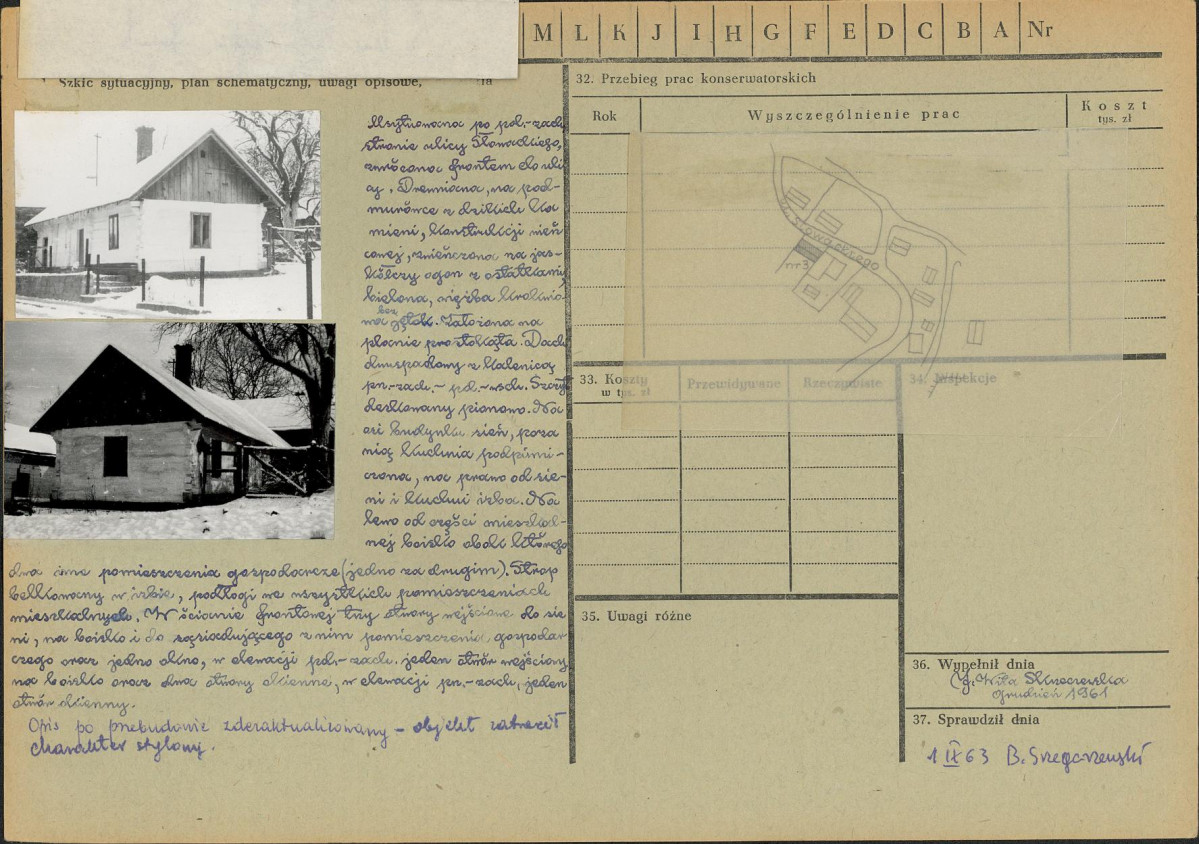 M L K J I H G F E D C B A Nr
Szkic sytuacyjny, plan schematyczny, uwagi opisowe,
Usytuowana po płd.-zach.
stronie ulicy Słowackiego,
zwrócona frontem do uli
cy. Drewniana, na pod-
murówce z dzikich ka
mieni, konstrukcji wień
cowej, zwieńczona na jas-
kółczy ogon z ostatkami,
bielona, więźba krokwio-
wa bez stolc. Założona na
planie prostokąta. Dach
dwuspadowy z kalenicą
pn.-zach.- płd.-wsch. Szczyt
deskowany pionowo. Na
osi budynku sień, poza
nią kuchnia podpiwni-
czona, na prawo od sie-
ni i kuchni izba. Na
lewo od części mieszkal-
nej boisko obok którego
dwa inne pomieszczenia gospodarcze (jedno za drugim). Strop
belkowany w izbie, podłogi we wszystkich pomieszczeniach
mieszkalnych. W ścianie frontowej trzy otwory wejściowe do sie
ni, na boisko i do sąsiadującego z nim pomieszczenia gospodar
czego oraz jedno okno, w elewacji płd.-zach. jeden otwór wejściowy
na boisko oraz dwa otwory okienne, w elewacji pn.-zach. jeden
otwór okienny.
Opis po przebudowie zdezaktualizowany – obiekt zatracił
charakter stylowy.
32. Przebieg prac konserwatorskich
Rok
Wyszczególnienie prac
Koszt
tys. zł
ul. Słowackiego
nr 3
33. Koszty
w tys. zł
Przewidywane
Rzeczywiste
34. Inspekcje
35. Uwagi różne
36. Wypełnił dnia
grudzień 1961
37. Sprawdził dnia
1 IX 63 B.